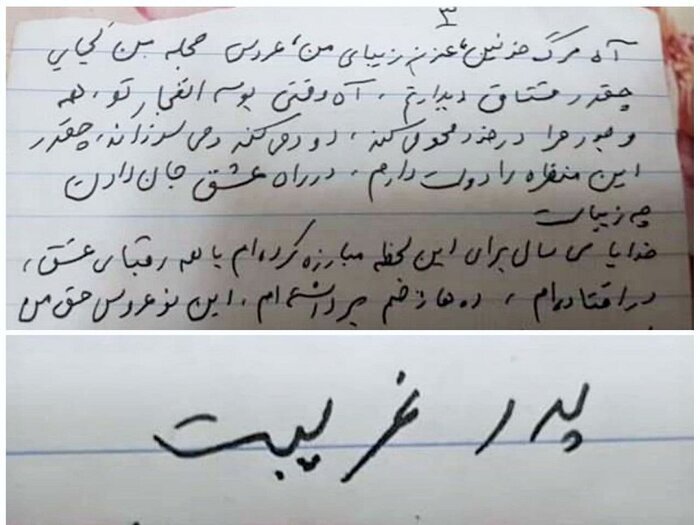 ۳
آه مرگ خونین، عزیزم زیبای من، عروس حجله من کجایی
چقدر مشتاق دیدارتم، آه وقتی بوسه انفجار تو، همه
وجود مرا در خود محو می‌کند، دود می‌کند و می‌سوزاند، چقدر
این منظره را دوست دارم، در راه عشق جان دادن
چه زیباست
خدایا سی سال برای این لحظه مبارزه کرده‌ام با همه رقبای عشق،
در افتاده‌ام، ده‌ها زخم برداشته‌ام، این نوعروس حق من
پدر غریبت